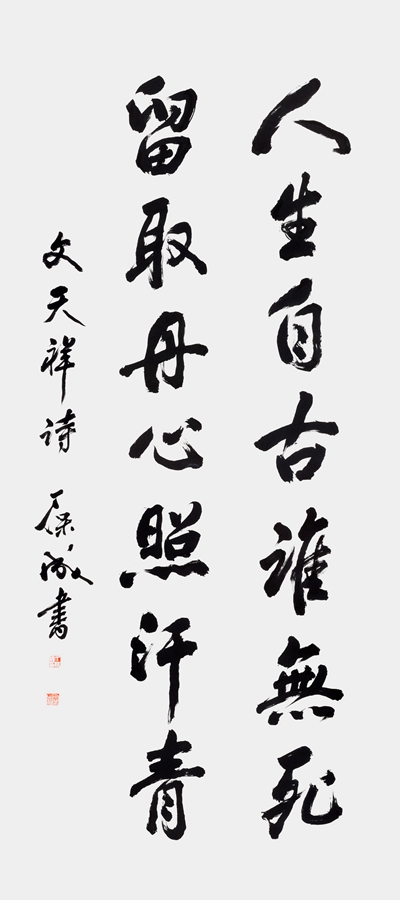 人生自古誰無死
留取丹心照汗青
文天祥诗 書